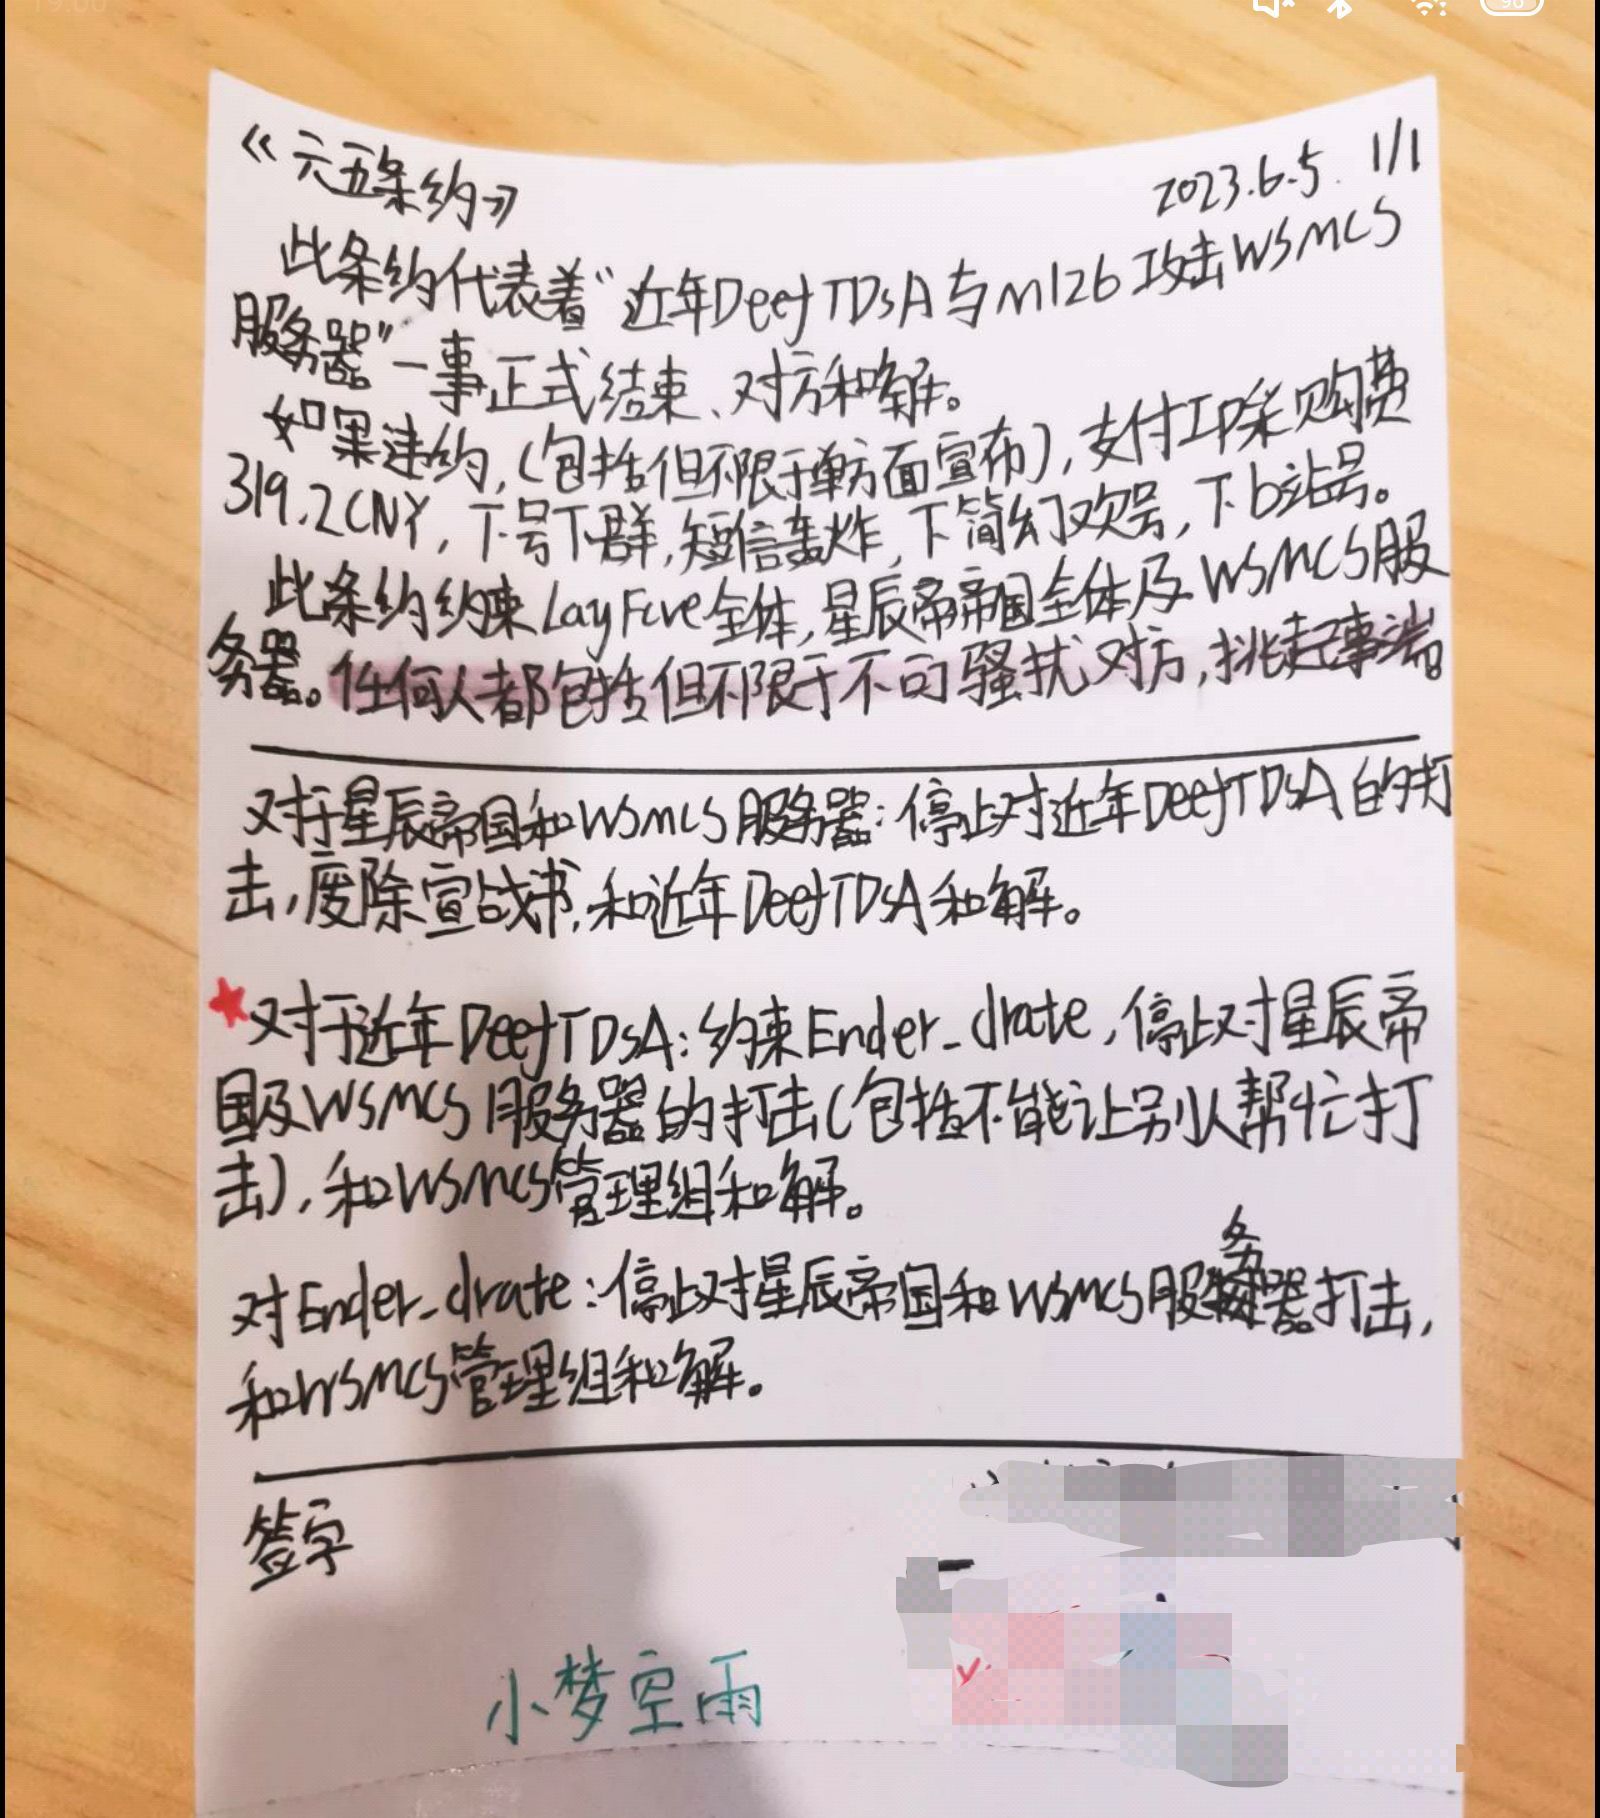 《六五条约》
2023.6.5. 1/1
此条约代表着“近年DeefTDsA与m126攻击WSMCS
服务器”一事正式结束、对方和解。
如果违约,(包括但不限于单方面宣布),支付IP采购费
319.2CNY,下号下群,短信轰炸,下简幻欢号,下b站号。
此条约约束LayFive全体,星辰帝帝国全体及WSMCS服
务器。任何人都包括但不限于不可骚扰对方,挑起事端。
对于星辰帝国和WSMCS服务器:停止对近年DeefTDsA的打
击,废除宣战书,和近年DeefTDsA和解。
对于近年DeefTDsA:约束Ender_drate,停止对星辰帝
国及WSMCS服务器的打击(包括不能让别人帮忙打
击),和WSMCS管理组和解。
对Ender_drate:停止对星辰帝国和WSMCS服务器打击,
和WSMCS管理组和解。
签字
小梦空雨